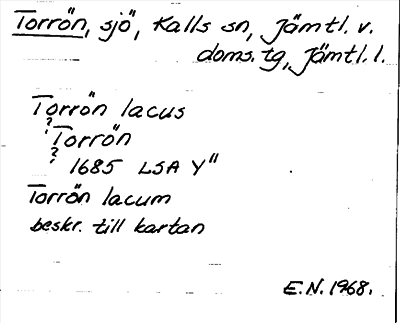 Torrön, sjö, Kalls sn, Jämtl. v.
doms. tg, Jämtl. l.
Torrön lacus
? Torrön
? 1685 LSA Y"
Torrön lacum
beskr. till kartan
E.N. 1968.